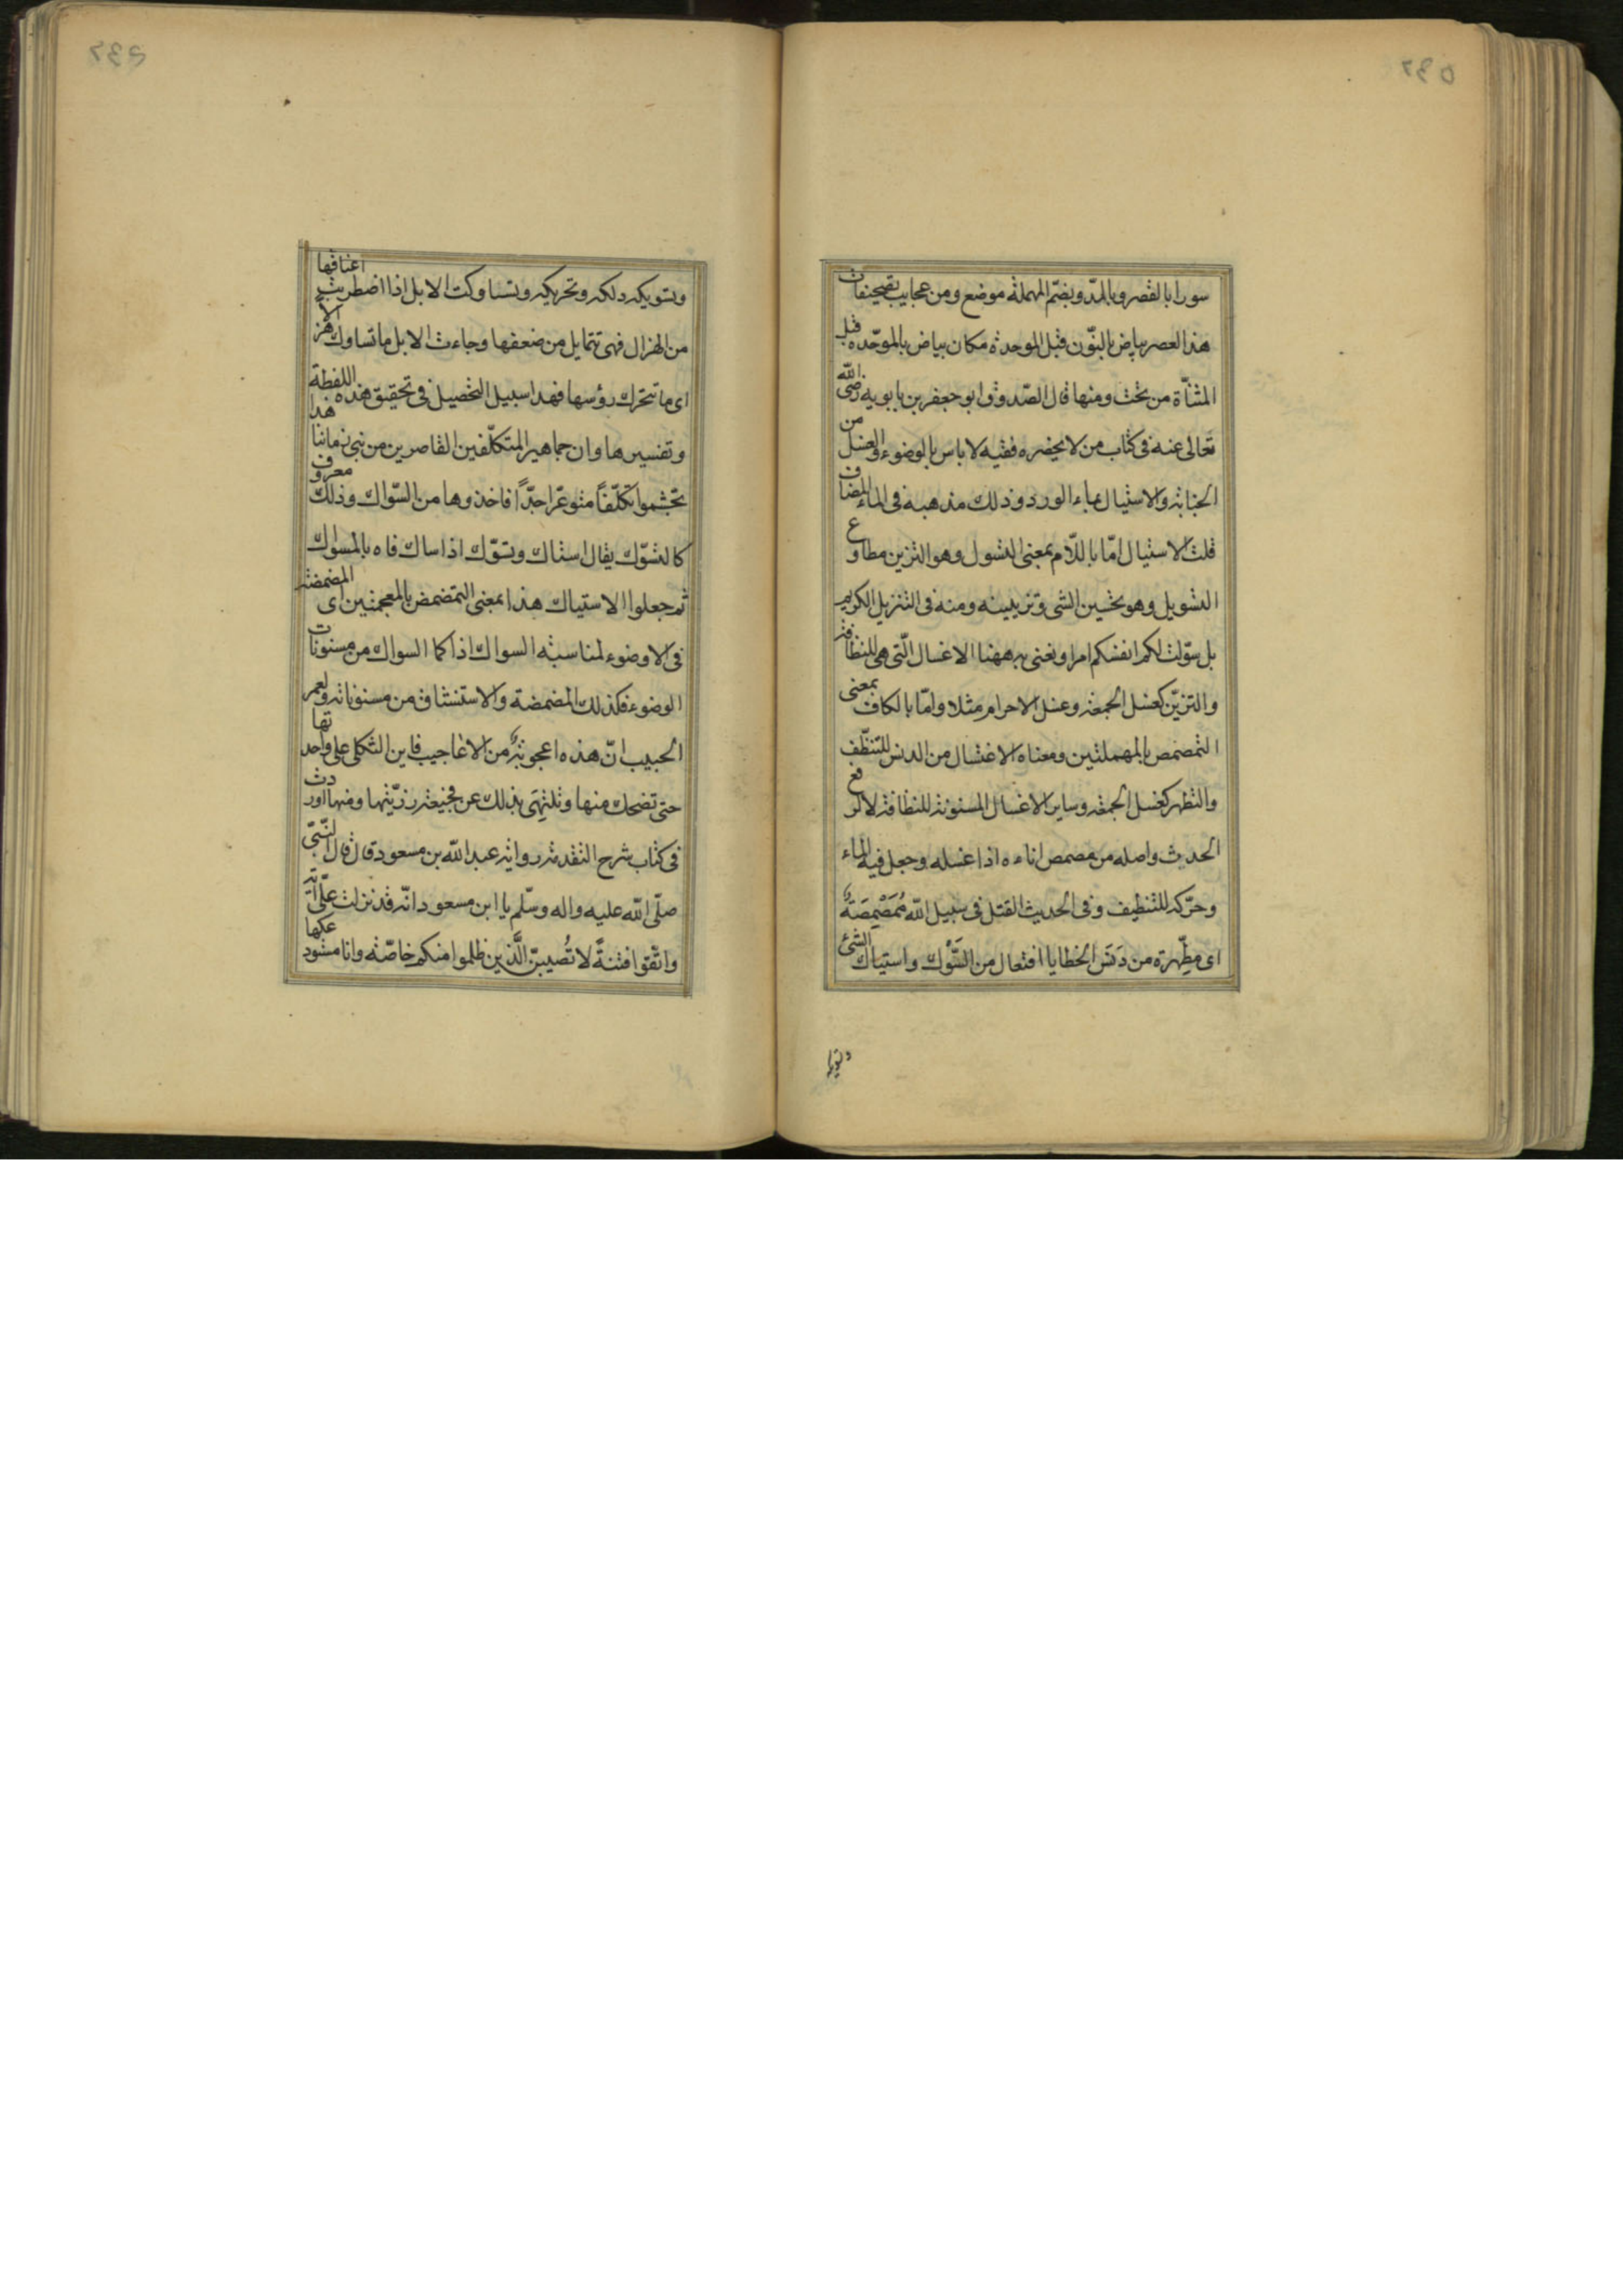 سورا بالقصر وبالمدّ وبضمّ المهملة موضع ومن عجايب تصحيفات
هذا العصر بياض بالنّون قبل الموحدة مكان بياض بالموحّده قبل
المثنّاة من تحت ومنها قال الصّدوق ابو جعفر بن بابويه رضى الله
تعالى عنه فى كتاب من لا يحضره فقيه لا باس بالوضوء والغسل من
الجنابة والاستيال بماء الورد وذلك مذهبه فى الماء المضاف
قلت الاستيال امّا باللّام بمعنى التسول وهو التزين مطاوع
التسويل وهو تحسين الشى وتزيينه ومنه فى التنزيل الكريم
بل سوّلت لكم انفسكم امرا ونعنى به ههنا الاغسال الّتى هى للنظافة
والتزيّن كغسل الجمعة وغسل الاحرام مثلا وامّا بالكاف بمعنى
التمصمص بالمهملتين ومعناه الاغتسال من الدنس للتنظّف
والتطهر كغسل الجمعة وساير الاغسال المسنونة للنظافة لا لرفع
الحديث واصله من مصمص اناءه اذا غسله وجعل فيه الماء
وحرّكه للتنظيف وفى الحديث القتل فى سبيل الله مُمَصْمِصَةٌ
اى مطِّهرة من دَنَس الخطايا افتعال من السَّوْك واستياك الشئ
وتسويكه
وتسويكه دلكه وتحريكه وتساوكت الابل اذا اضطربت اعناقها
من الهزال فهى تتمايل من ضعفها وجاءت الابل ما تساوك هز الا
اى ما تتحرك رؤسها فهذا سبيل التحصيل فى تحقيق هذه اللفظة
وتفسيرها وان جماهير المتكلّفين القاصرين من بنى زماننا هذا
تجشموا تكلّفًا متوعّرا جدًّا فاخذوها من السّواك وذلك معروف
كالتسوّك يقال استاك وتسوّك اذا ساك فاه بالمسواك
ثم جعلوا الاستياك هذا بمعنى التمضمض بالمعجمتين اى المضمضة
فى الاوضوء لمناسبة السواك اذ كما السواك من مسنونات
الوضوء فكذلك المضمضة والاستنشاق من مسنوناته ولعمر
الحبيب انّ هذه اعجوبةٌ من الاعاجيب فاين الثكلى على واحدتها
حتى تضحك منها وتلتهى بذلك عن فجيعة رزيّتها ومنها اوردت
فى كتاب شرح التقدمة رواية عبد الله بن مسعود قال قال النّبىّ
صلّى الله عليه واله وسلّم يا ابن مسعود انّه قد نزلت علىّ اية
واتّقوا فتنةً لا تُصيبنّ الَّذين ظلموا منكم خاصّة وانا مستودعكها